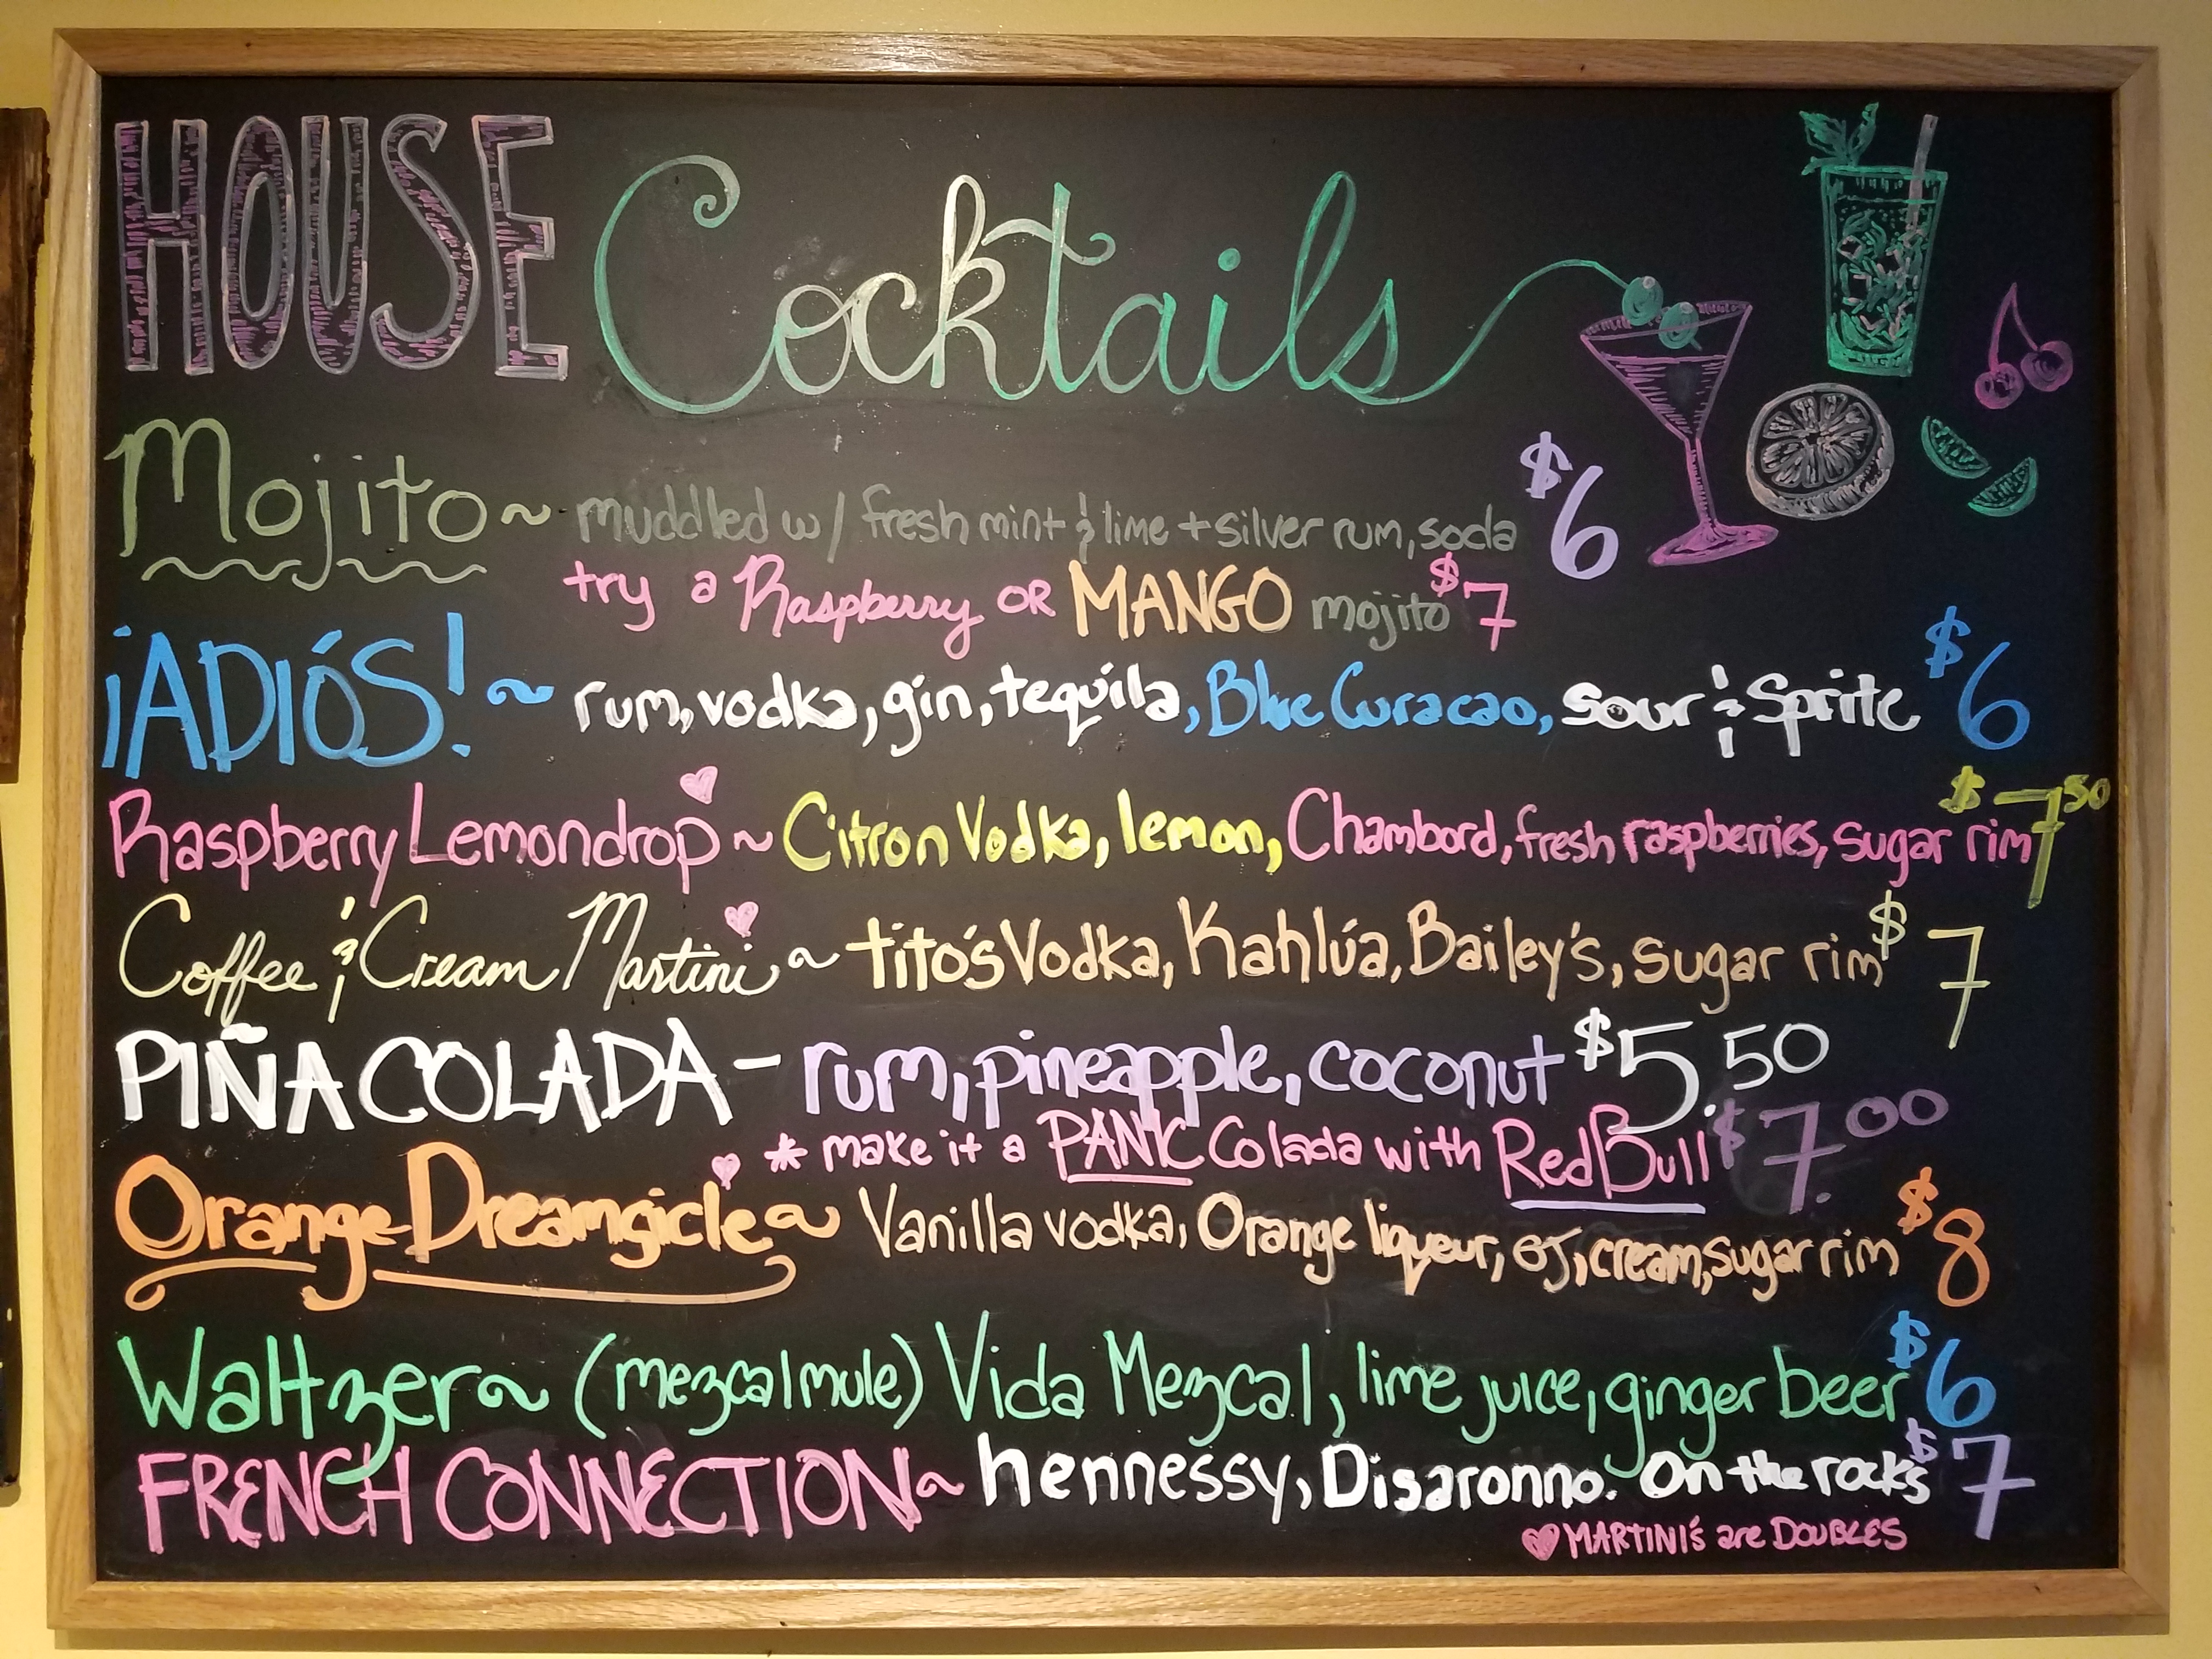 HOUSE Cocktails
Mojito ~ muddled w/ fresh mint & lime + silver rum, soda $6
try a Raspberry OR MANGO mojito $7
¡ADIÓS! ~ rum, vodka, gin, tequila, Blue Curacao, sour & Sprite $6
Raspberry Lemondrop ~ Citron Vodka, lemon, Chambord, fresh raspberries, sugar rim $7 50
Coffee & Cream Martini ~ tito's Vodka, Kahlúa, Bailey's, sugar rim $7
PIÑA COLADA - rum, pineapple, coconut $5.50
* make it a PANIC Colada with RedBull $7.00
Orange Dreamsicle ~ Vanilla vodka, Orange liqueur, OJ, cream, sugar rim $8
Waltzer ~ (mezcal mule) Vida Mezcal, lime juice, ginger beer $6
FRENCH CONNECTION ~ hennessy, Disaronno. On the rocks $7
♥ MARTINI'S are DOUBLES